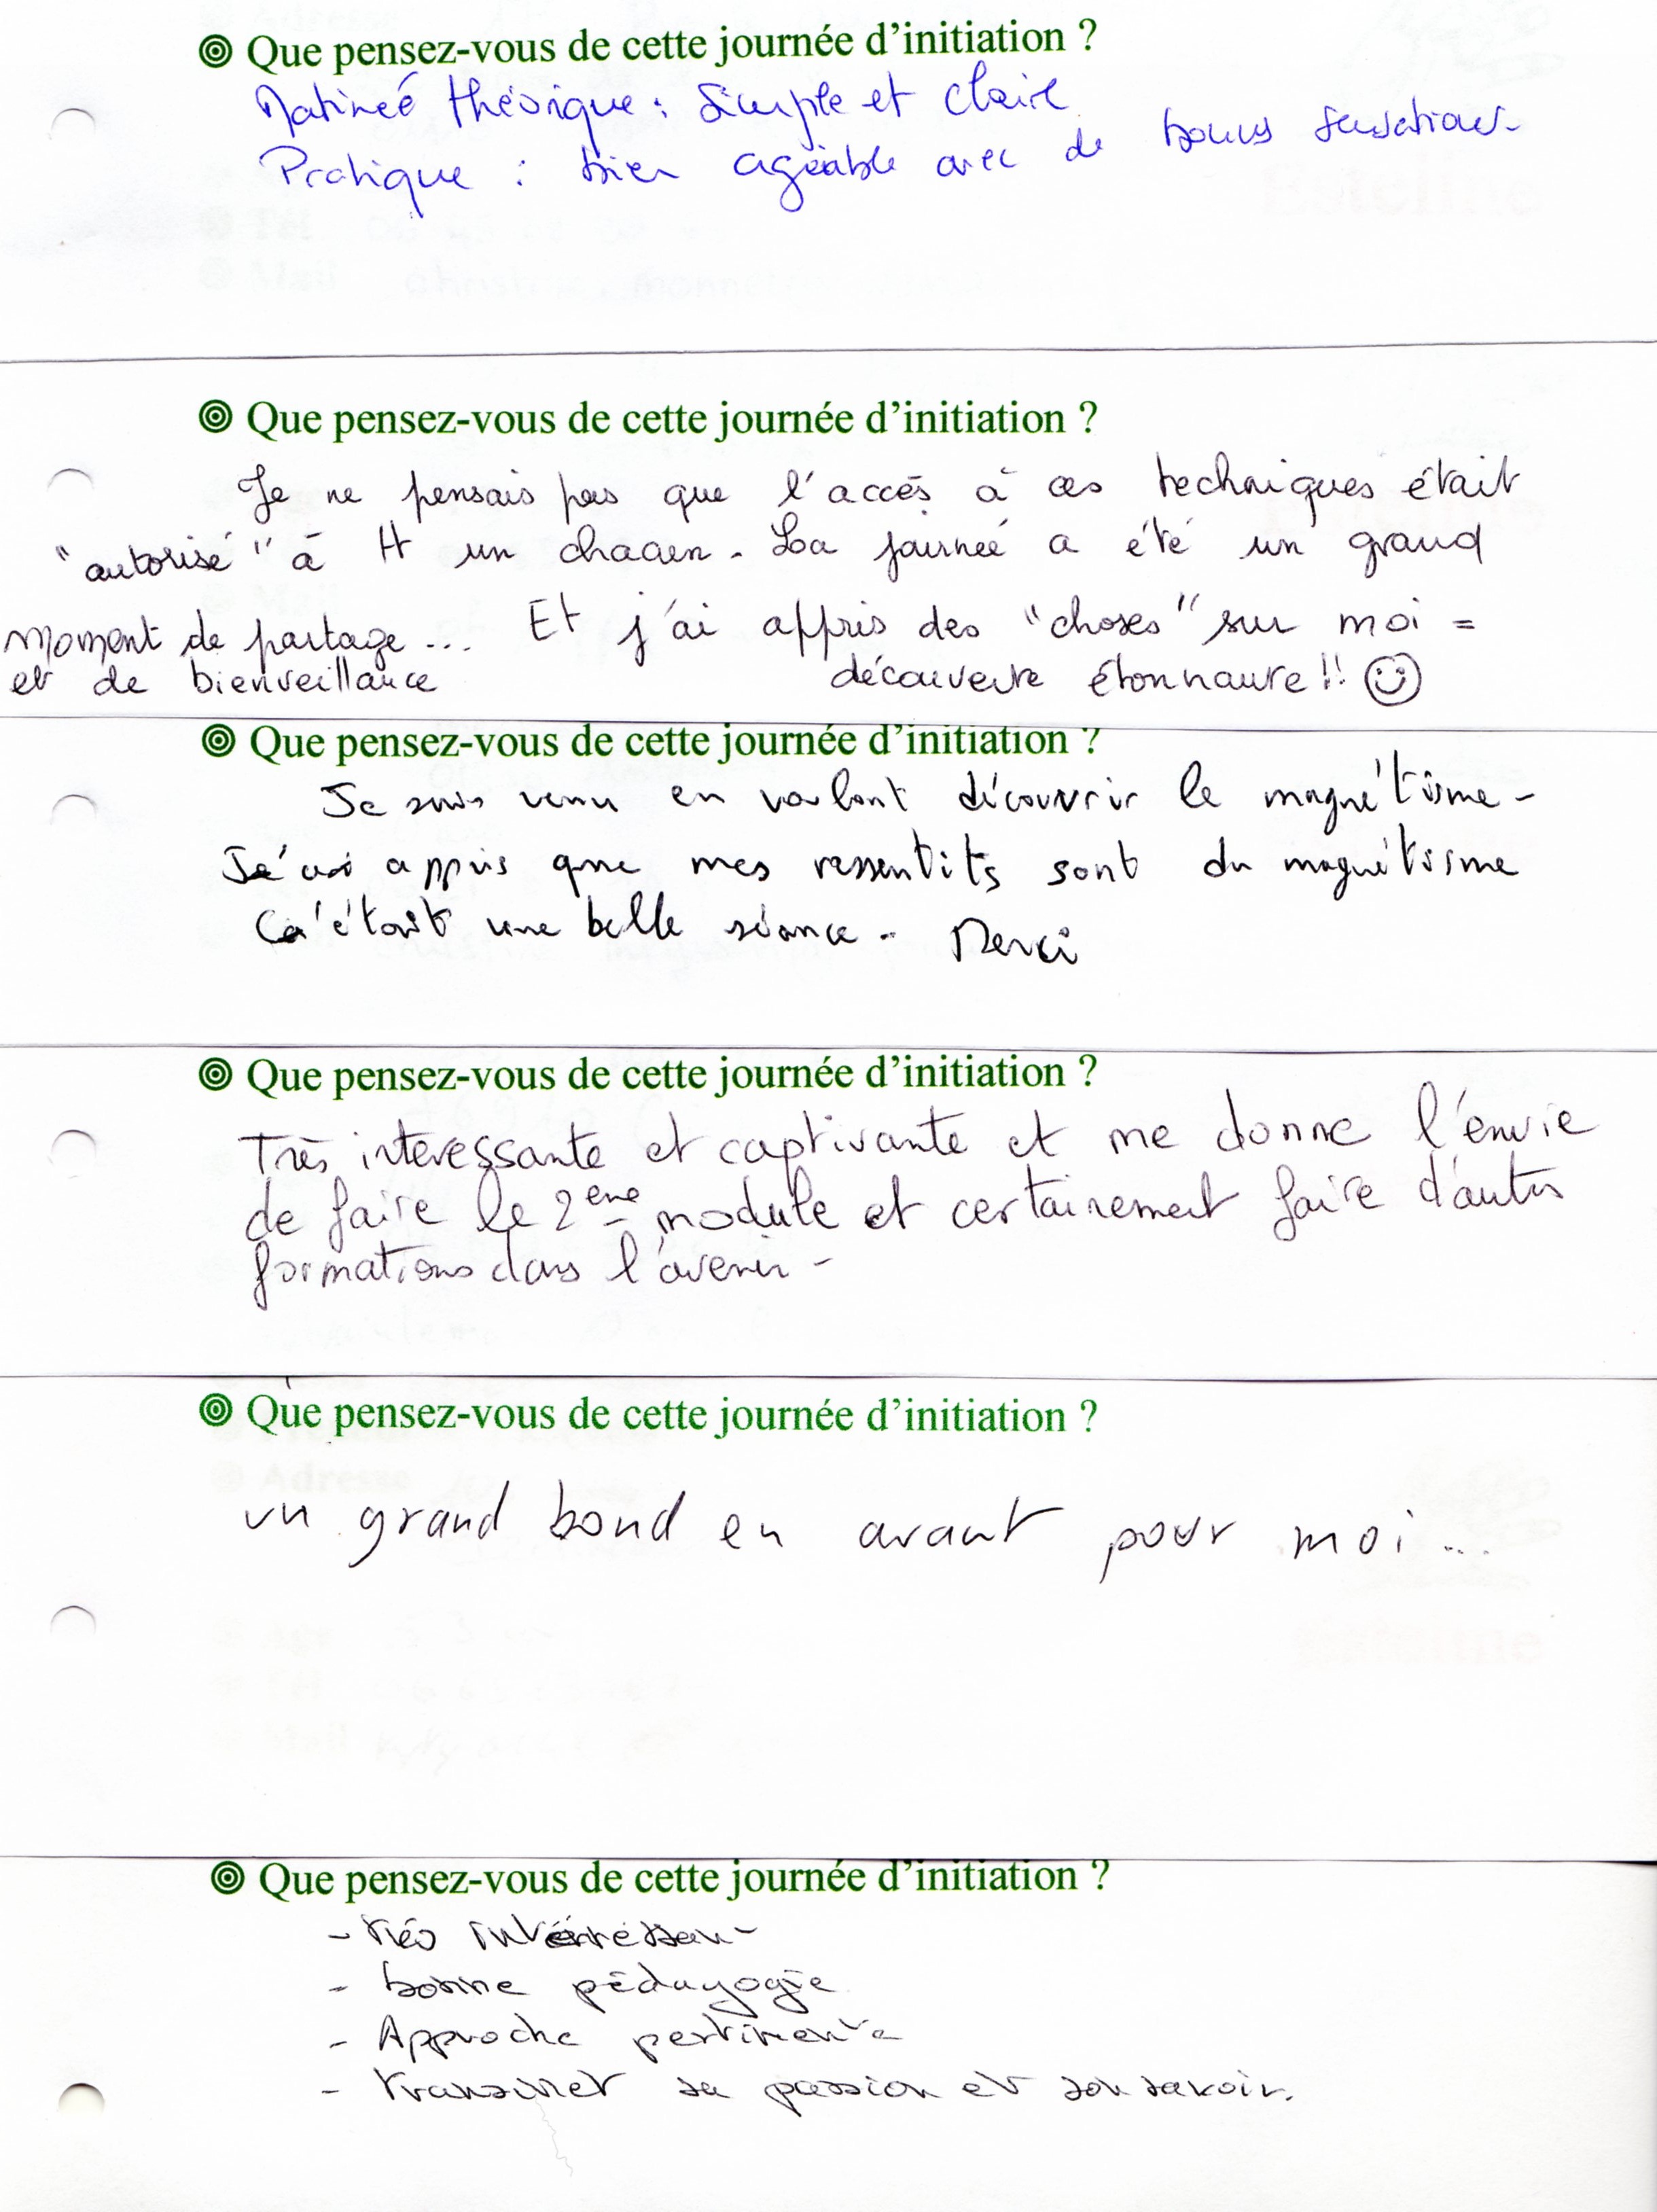 Que pensez-vous de cette journée d'initiation ?
Matineé théorique : Simple et claire
Pratique : bien agréable avec de bonnes sensations.
Que pensez-vous de cette journée d'initiation ?
Je ne pensais pas que l'accès à ces techniques était
"autorisé" à tt un chacun. La journeé a été un grand
moment de partage... Et j'ai appris des "choses" sur moi =
et de bienveillance découverte étonnante !! ☺
Que pensez-vous de cette journée d'initiation ?
Je suis venu en voulant découvrir le magnétisme -
Je'ai appris que mes ressentits sont du magnétisme
Ca'était une belle séance. Merci
Que pensez-vous de cette journée d'initiation ?
Très interessante et captivante et me donne l'envie
de faire le 2eme module et certainement faire d'autres
formations dans l'avenir -
Que pensez-vous de cette journée d'initiation ?
un grand bond en avant pour moi...
Que pensez-vous de cette journée d'initiation ?
- très
- bonne pédagogie
- Approche pertinente
- transmet sa passion et son savoir.